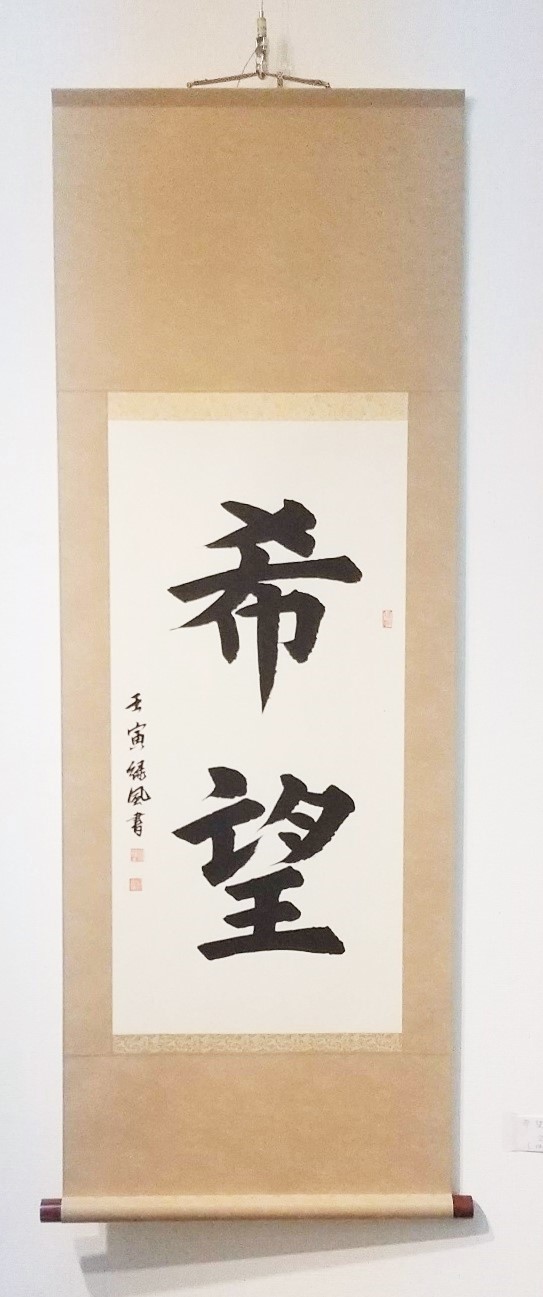 希望
壬寅綠風書